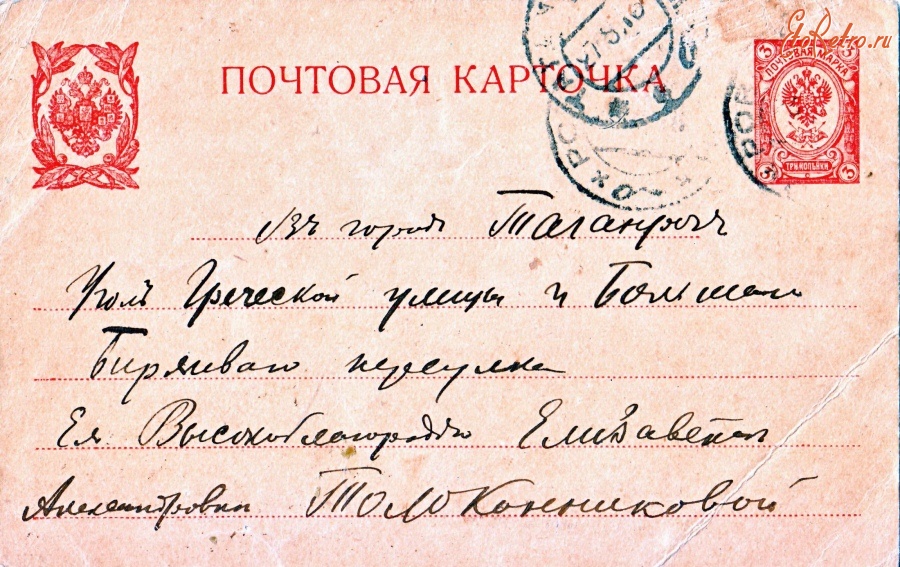 EtoRetro.ru
ПОЧТОВАЯ КАРТОЧКА
ПОЧТОВАЯ МАРКА
3 3
ТРИ КОПѢЙКИ
3 3
27.5.
РОС
РОС
Въ городъ Таганрогъ
Уголъ Греческой улицы и Большаго
Биржеваго переулка
Ея Высокоблагородію Елизаветѣ
Александровнѣ Толоконниковой